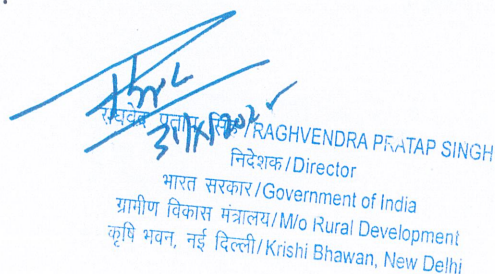 राघवेन्द्र प्रताप सिंह/RAGHVENDRA PRATAP SINGH
निदेशक/Director
भारत सरकार/Government of India
ग्रामीण विकास मंत्रालय/M/o Rural Development
कृषि भवन, नई दिल्ली/Krishi Bhawan, New Delhi